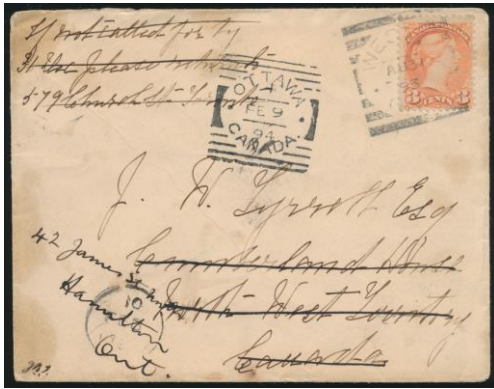 If not called for by
31 Dec please return to
579 Church St Toronto
OTTAWA
FE 9
94
CANADA
3 CENTS 3
J. W. Tyrrell Esq
Cumberland House
North West Territory
Canada
42 James St
Hamilton
Ont.
10